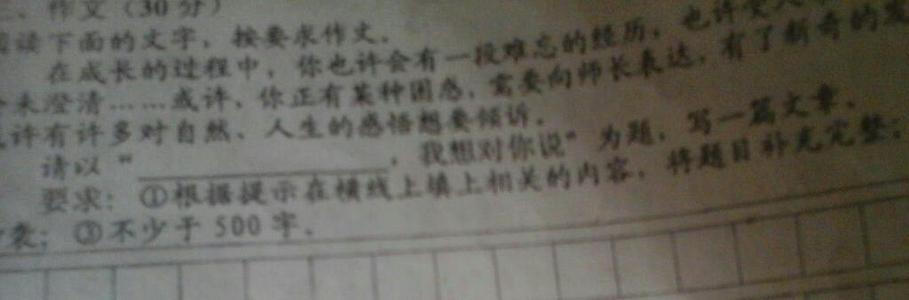 、作文（30分）
阅读下面的文字，按要求作文．
在成长的过程中，你也许会有一段难忘的经历，也许受人
未澄清……或许，你正有某种困惑，需要向师长表达，有了新奇的发
许有许多对自然、人生的感悟想要倾诉．
请以“＿＿＿＿＿＿＿＿，我想对你说”为题，写一篇文章．
要求：①根据提示在横线上填上相关的内容，将题目补充完整；
袭；③不少于500字．